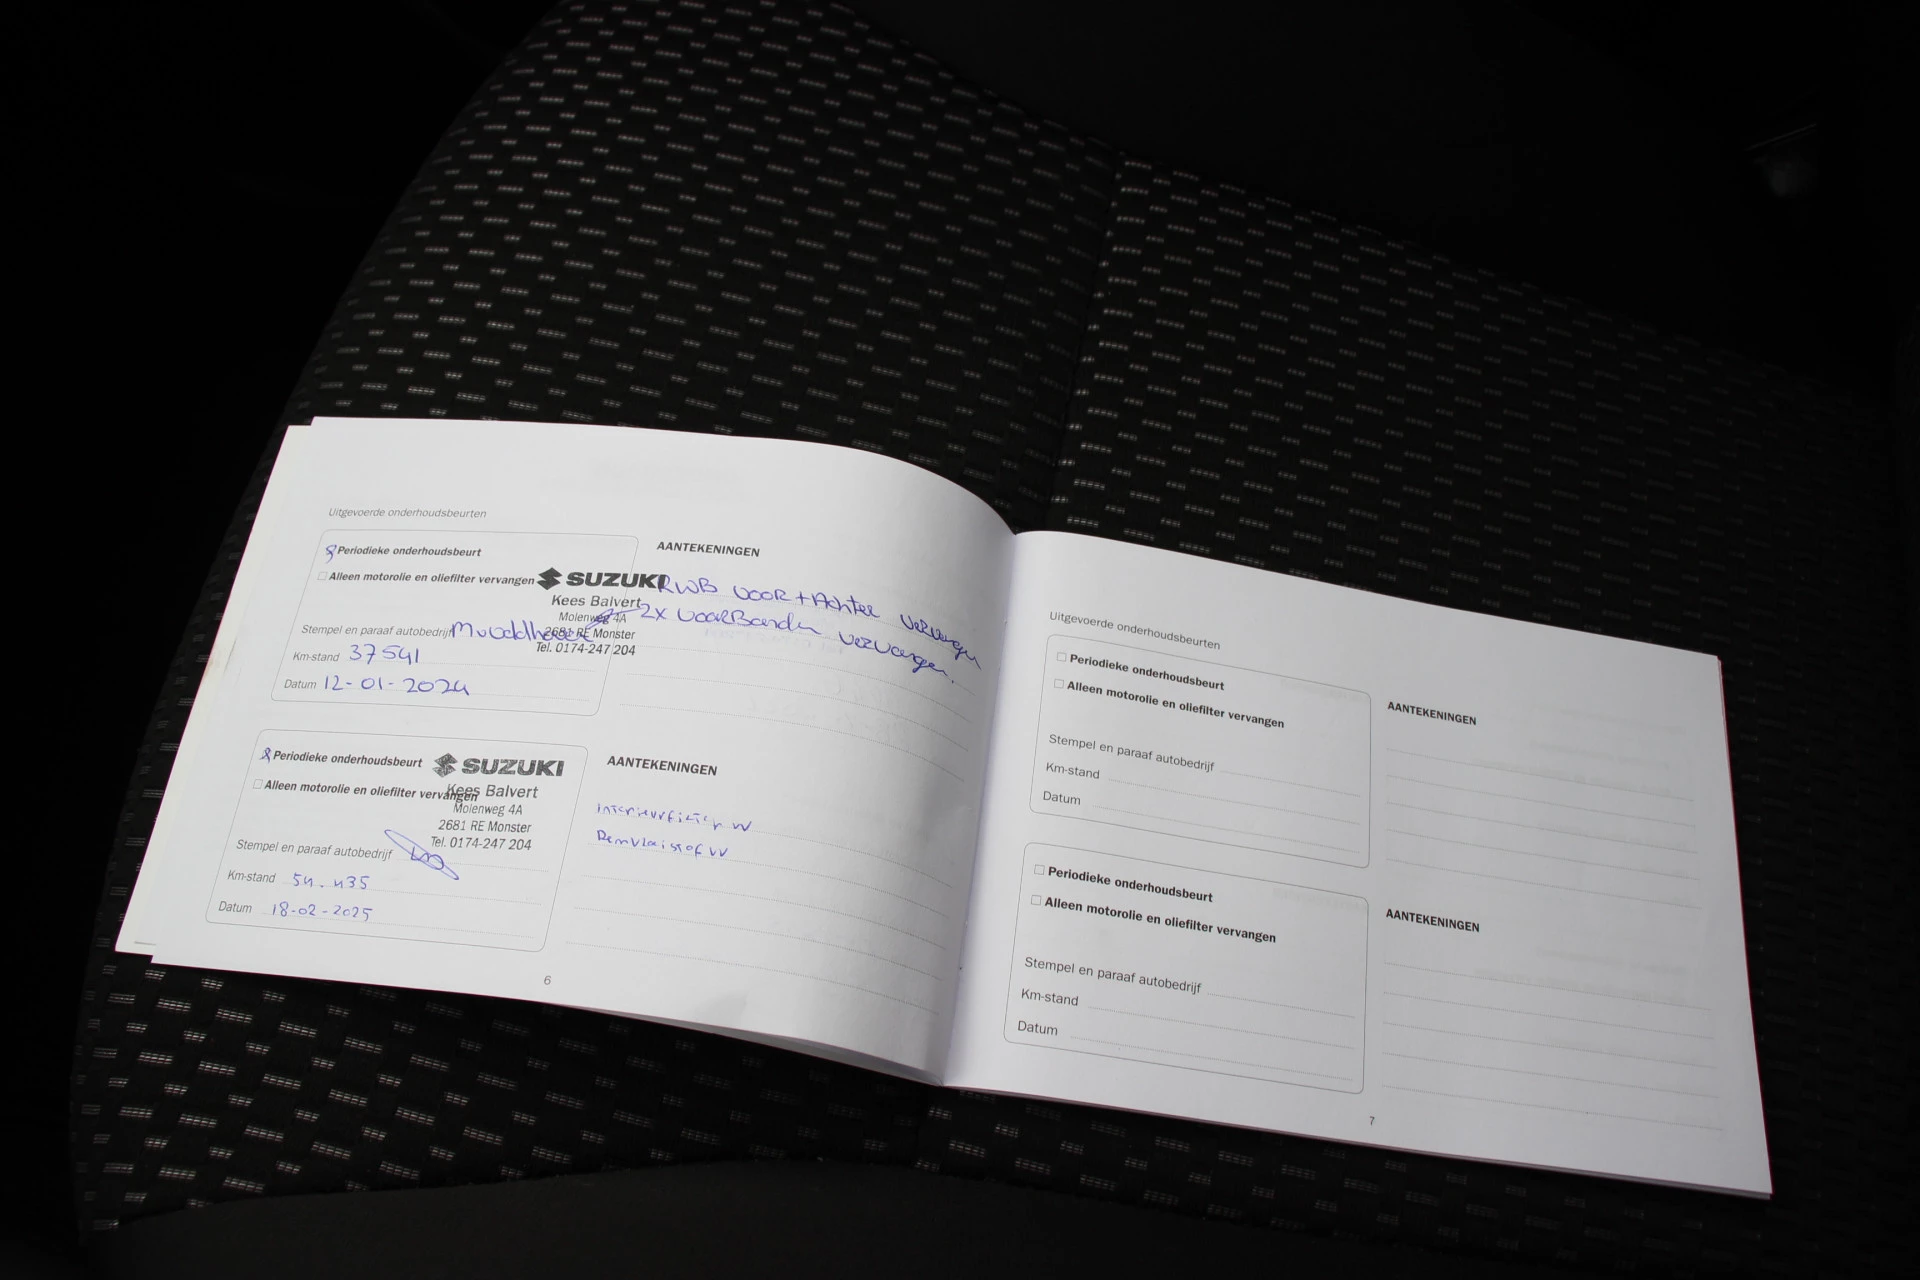 Uitgevoerde onderhoudsbeurten
Periodieke onderhoudsbeurt
Alleen motorolie en oliefilter vervangen
SUZUKI
Kees Balvert
Molenweg 4A
2681 RE Monster
Tel. 0174-247 204
Stempel en paraaf autobedrijf
Km-stand 37541
Datum 12-01-2024
AANTEKENINGEN
RWB voor + Achter vervangen
2x voorBanden vervangen.
Periodieke onderhoudsbeurt
Alleen motorolie en oliefilter vervangen
SUZUKI
Kees Balvert
Molenweg 4A
2681 RE Monster
Tel. 0174-247 204
Stempel en paraaf autobedrijf
Km-stand 54.435
Datum 18-02-2025
AANTEKENINGEN
Interieurfilter vv
Remvloeistof vv
6
Uitgevoerde onderhoudsbeurten
Periodieke onderhoudsbeurt
Alleen motorolie en oliefilter vervangen
Stempel en paraaf autobedrijf
Km-stand
Datum
AANTEKENINGEN
Periodieke onderhoudsbeurt
Alleen motorolie en oliefilter vervangen
Stempel en paraaf autobedrijf
Km-stand
Datum
AANTEKENINGEN
7